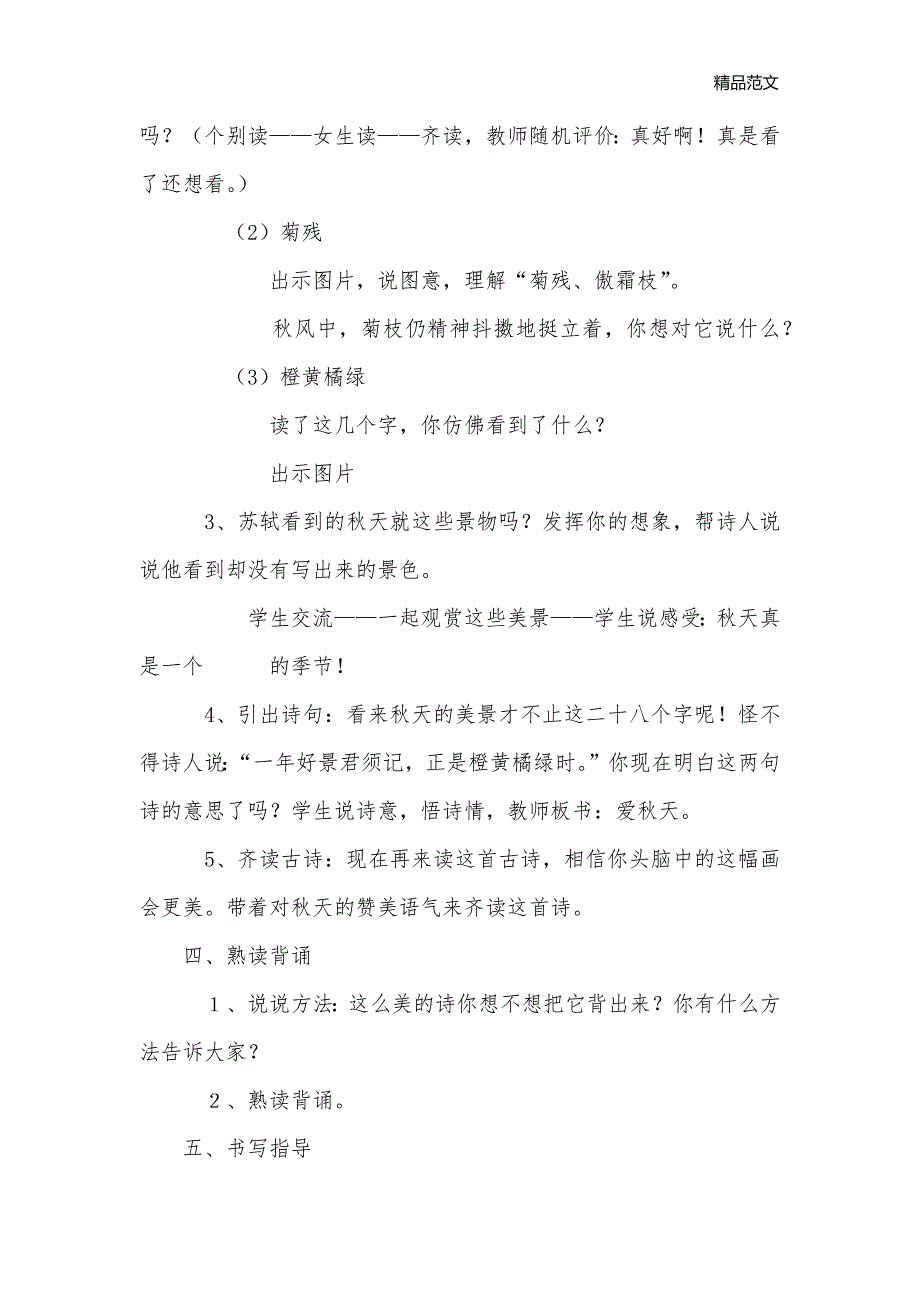 精品范文
吗？（个别读——女生读——齐读，教师随机评价：真好啊！真是看
了还想看。）
（2）菊残
出示图片，说图意，理解“菊残、傲霜枝”。
秋风中，菊枝仍精神抖擞地挺立着，你想对它说什么？
（3）橙黄橘绿
读了这几个字，你仿佛看到了什么？
出示图片
3、苏轼看到的秋天就这些景物吗？发挥你的想象，帮诗人说
说他看到却没有写出来的景色。
学生交流——一起观赏这些美景——学生说感受：秋天真
是一个　　　的季节！
4、引出诗句：看来秋天的美景才不止这二十八个字呢！怪不
得诗人说：“一年好景君须记，正是橙黄橘绿时。”你现在明白这两句
诗的意思了吗？学生说诗意，悟诗情，教师板书：爱秋天。
5、齐读古诗：现在再来读这首古诗，相信你头脑中的这幅画
会更美。带着对秋天的赞美语气来齐读这首诗。
四、熟读背诵
１、说说方法：这么美的诗你想不想把它背出来？你有什么方
法告诉大家？
２、熟读背诵。
五、书写指导